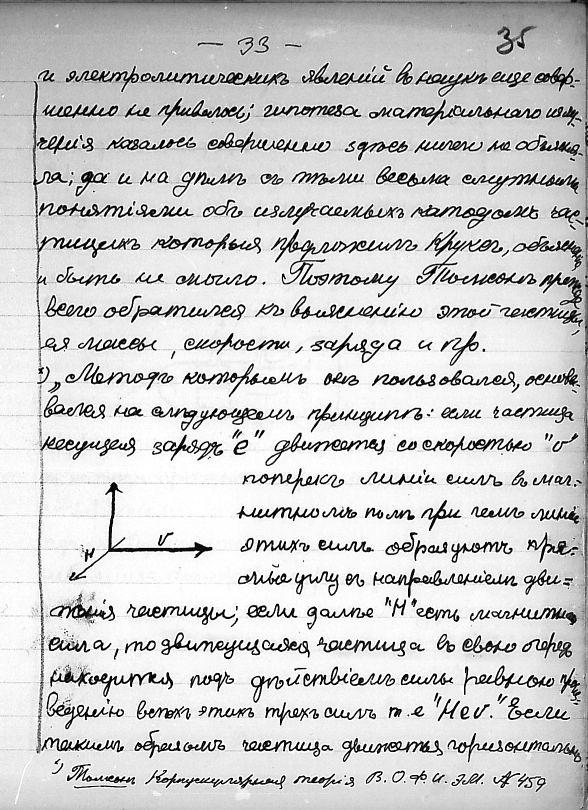 — 33 —
35
и электролитическихъ явленій въ наукѣ еще совер-
шенно не привилось; гипотеза матеріальнаго излу-
ченія казалось совершенно здѣсь ничего не объясня-
ла; да и на дѣлѣ съ тѣми весьма смутными
понятіями объ излучаемыхъ катодомъ час-
тицахъ которыя предложилъ Круксъ,
и быть не могло. Поэтому Томсонъ прежде
всего обратился къ выясненію этой частицы,
ея массы, скорости, заряда и пр.
*) „Методъ которымъ онъ пользовался, основы-
вался на слѣдующемъ принципѣ: если частица
несущая зарядъ "e" движется со скоростью "v"
поперекъ линіи силъ въ маг-
нитномъ полѣ при чемъ линіи
этихъ силъ образуютъ пря-
мые углы съ направленіемъ дви-
H
v
женія частицы; если далѣе "H" есть магнитная
сила, то движущаяся частица въ свою очередь
находится подъ дѣйствіемъ силы равною про-
веденію всѣхъ этихъ трехъ силъ т.е "Hev." Если
такимъ образомъ частица движется горизонтально
*) Томсонъ Корпускулярная теорія В.О.Ф. и Э.М. № 459